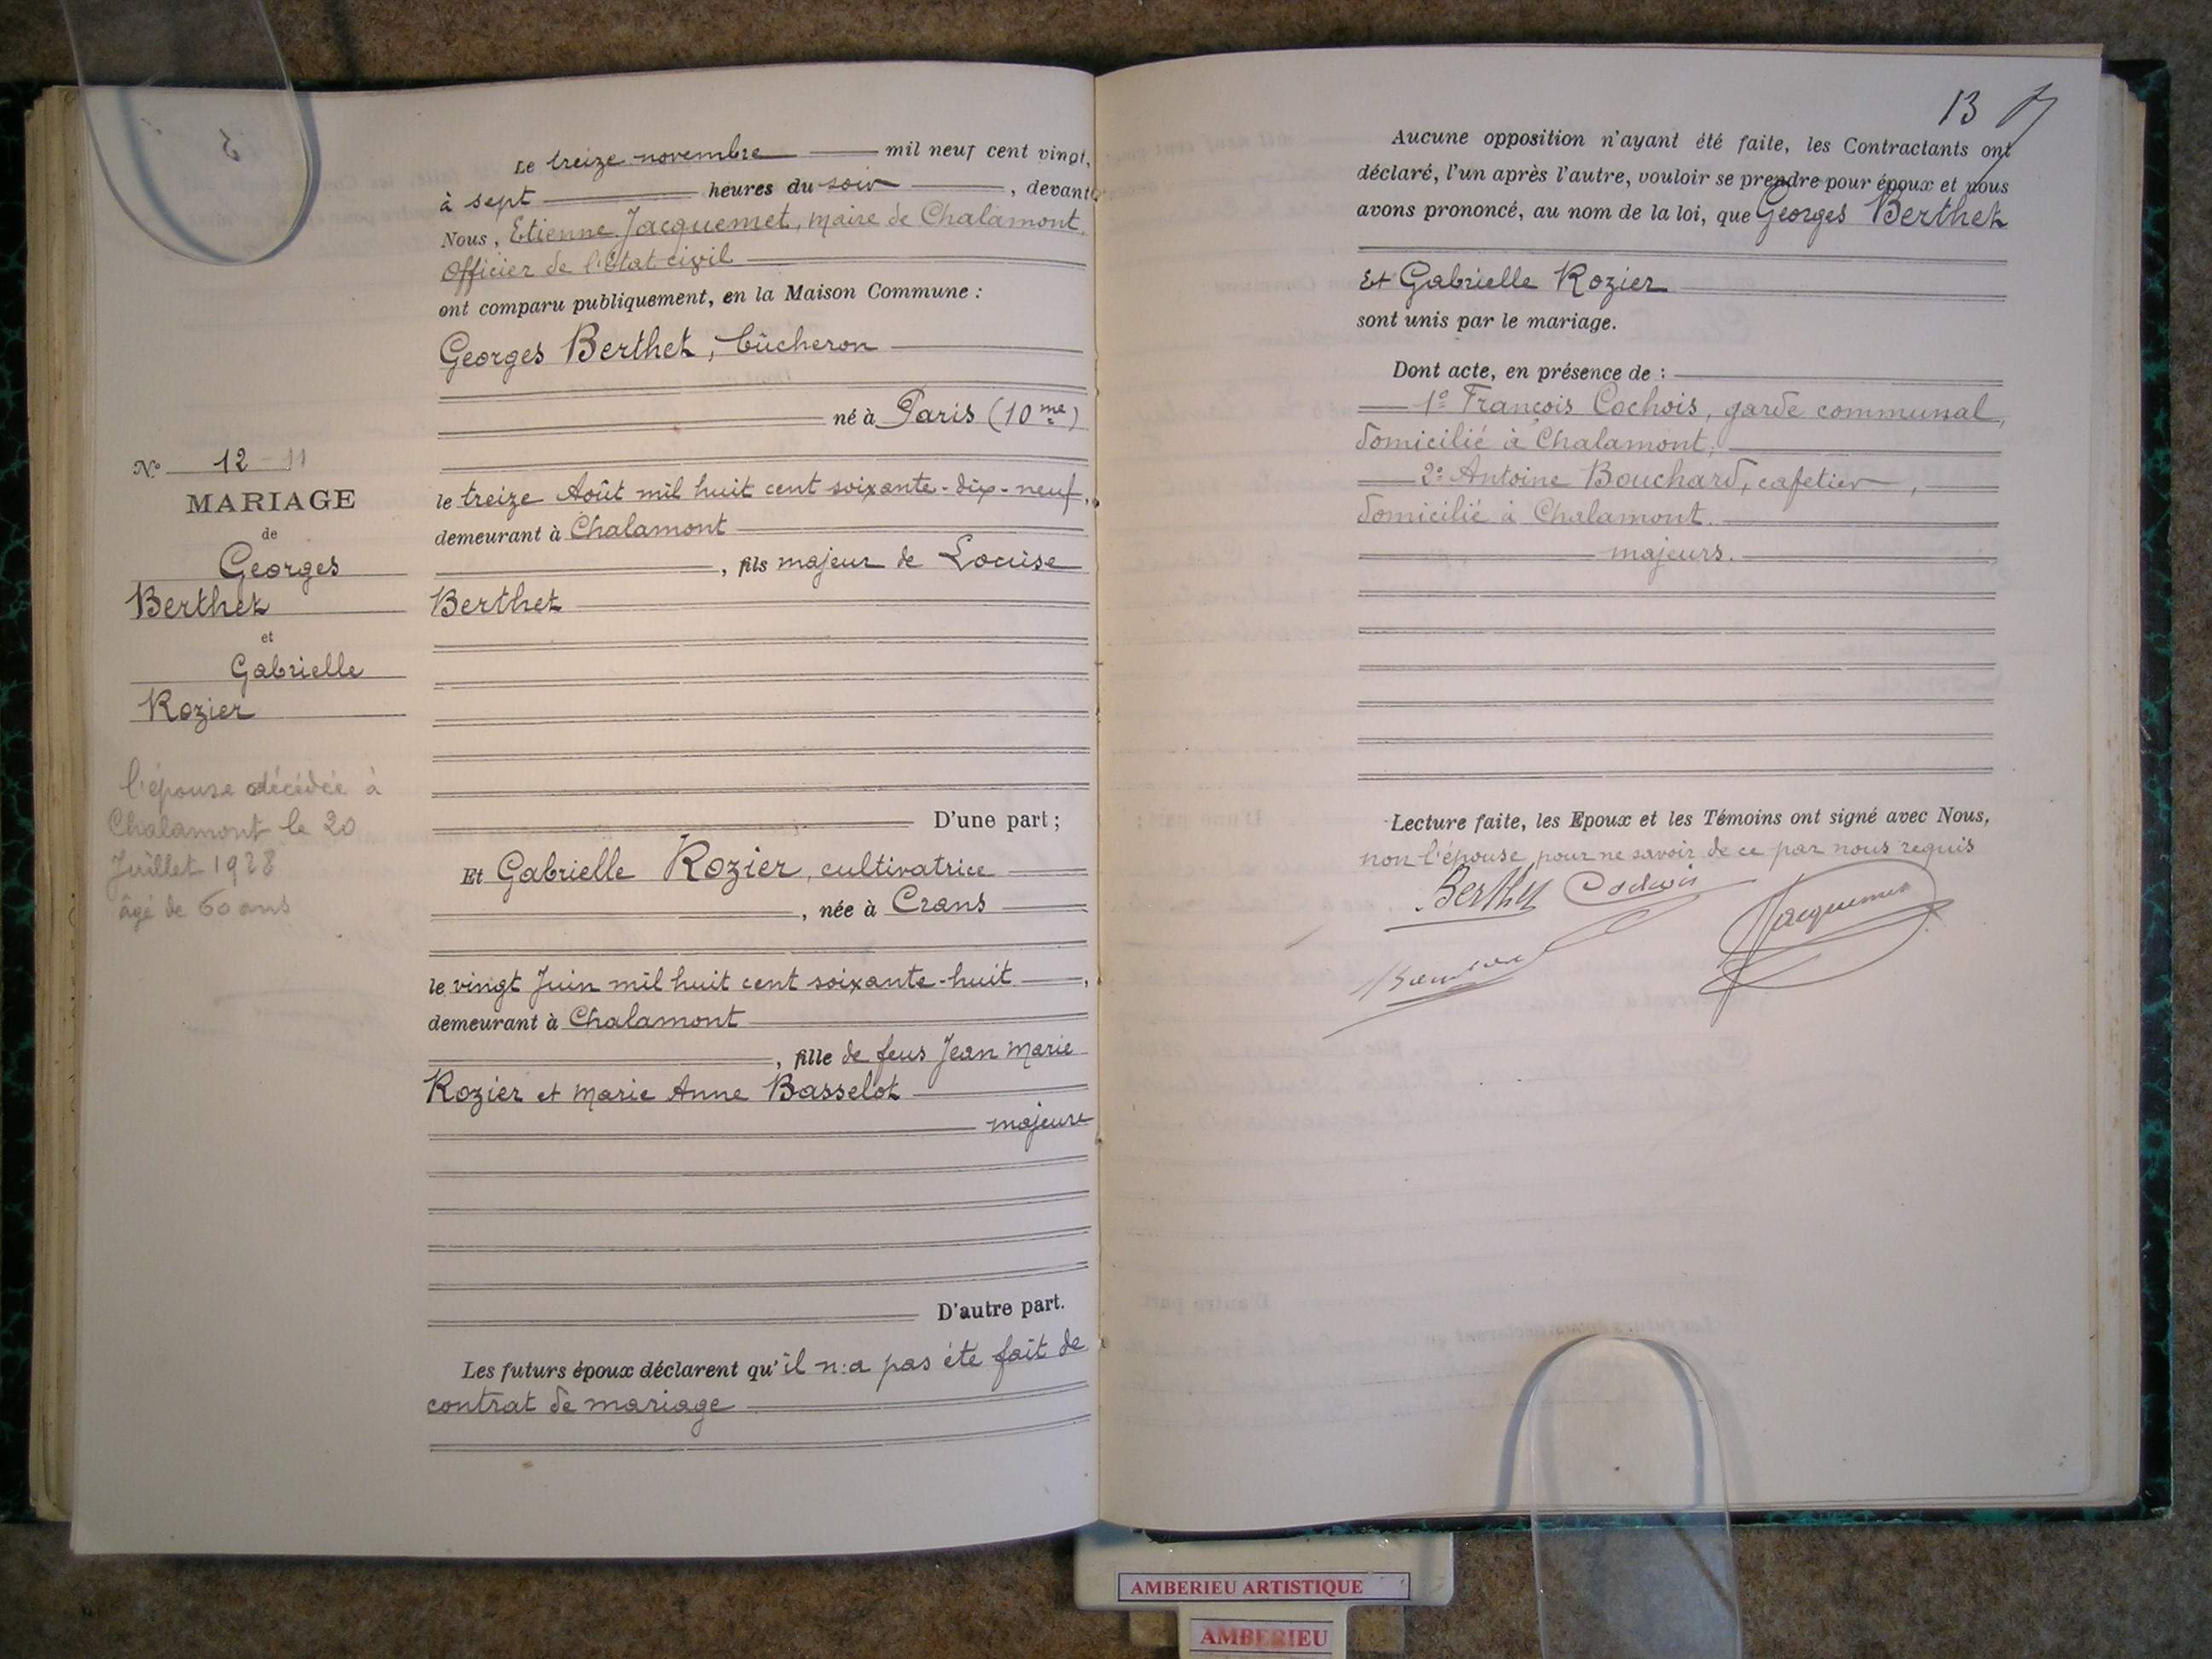 Nº 12 - 11
MARIAGE
de
Georges
Berthet
et
Gabrielle
Rozier
l'épouse décédée à
Chalamont le 20
Juillet 1928
âgé de 60 ans
Le treize novembre mil neuf cent vingt,
à sept heures du soir, devant
Nous, Etienne Jacquemet, Maire de Chalamont,
Officier de l'Etat civil
ont comparu publiquement, en la Maison Commune :
Georges Berthet, bûcheron
né à Paris (10me)
le treize Août mil huit cent soixante-dix-neuf,
demeurant à Chalamont
, fils majeur de Louise
Berthet
D'une part ;
Et Gabrielle Rozier, cultivatrice
, née à Crans
le vingt Juin mil huit cent soixante-huit,
demeurant à Chalamont
, fille de feus Jean Marie
Rozier et Marie Anne Basselot
majeure
D'autre part.
Les futurs époux déclarent qu'il n'a pas été fait de
contrat de mariage
13
Aucune opposition n'ayant été faite, les Contractants ont
déclaré, l'un après l'autre, vouloir se prendre pour époux et nous
avons prononcé, au nom de la loi, que Georges Berthet
Et Gabrielle Rozier
sont unis par le mariage.
Dont acte, en présence de :
1º François Cochois, garde communal,
domicilié à Chalamont,
2º Antoine Bouchard, cafetier,
domicilié à Chalamont.
majeurs.
Lecture faite, les Epoux et les Témoins ont signé avec Nous,
non l'épouse pour ne savoir de ce par nous requis
Berthet Cochois
Jacquemet
AMBERIEU ARTISTIQUE
AMBERIEU